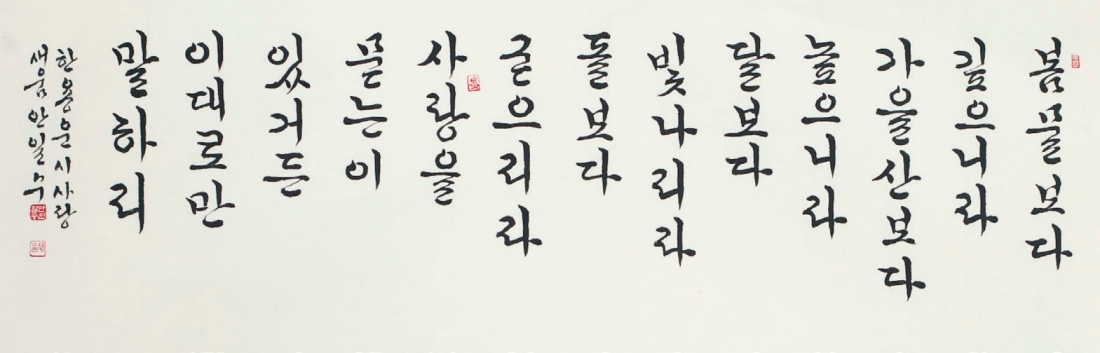 봄물보다
깊으니라
가을산보다
높으니라
달보다
빛나리라
돌보다
굳으리라
사랑을
묻는이
있거든
이대로만
말하리
한용운 시 사랑
새움 안일수